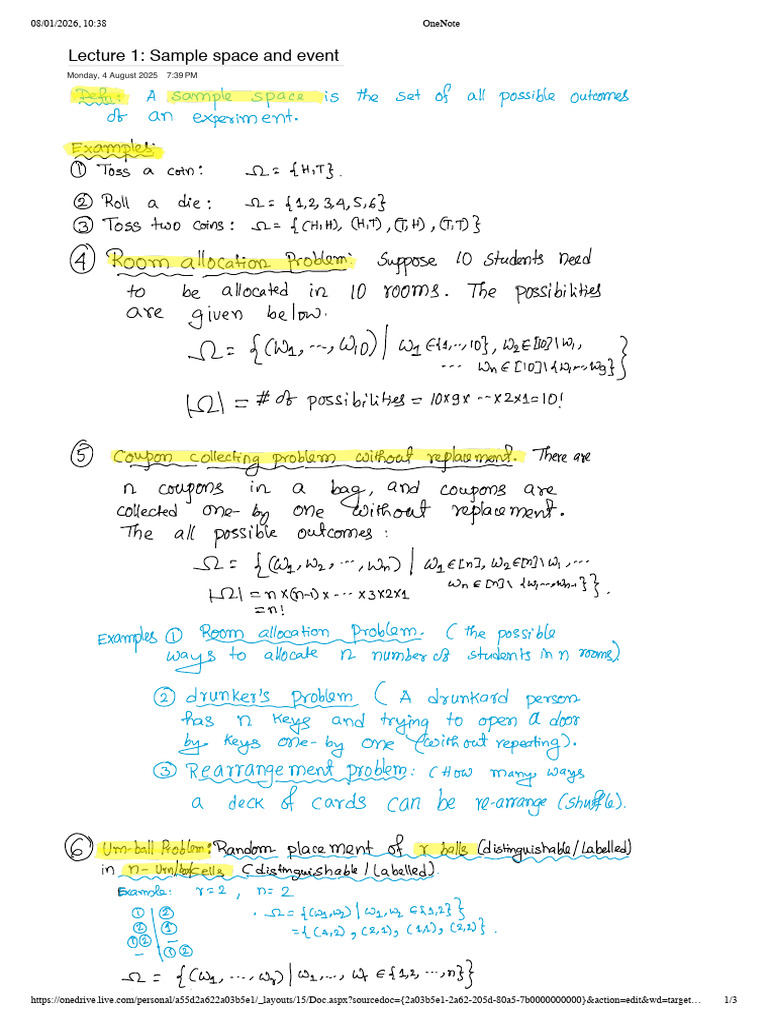 08/01/2026, 10:38 OneNote
Lecture 1: Sample space and event
Monday, 4 August 2025 7:39 PM
Defn: A sample space is the set of all possible outcomes
of an experiment.
Examples:
① Toss a coin: Ω = {H,T}.
② Roll a die: Ω = {1,2,3,4,5,6}
③ Toss two coins: Ω = {(H,H), (H,T), (T,H), (T,T)}
④ Room allocation Problem: Suppose 10 students need
to be allocated in 10 rooms. The possibilities
are given below.
Ω = {(ω1, ..., ω10) | ω1 ∈ {1,..,10}, ω2 ∈ [10] \ ω1,
... ωn ∈ [10] \ {ω1..., ω9}}
|Ω| = # of possibilities = 10×9× ... ×2×1 = 10!
⑤ Coupon collecting problem without replacement. There are
n coupons in a bag, and coupons are
collected one-by one without replacement.
The all possible outcomes:
Ω = {(ω1, ω2, ..., ωn) | ω1 ∈ [n], ω2 ∈ [n] \ ω1, ...
ωn ∈ [n] \ {ω1,...,ωn-1}}.
|Ω| = n×(n-1)× ... ×3×2×1
= n!
Examples ① Room allocation Problem. (the possible
ways to allocate n number of students in n rooms)
② drunker's problem (A drunkard person
has n keys and trying to open a door
by keys one-by one (without repeating).
③ Rearrangement problem: (How many ways
a deck of cards can be re-arrange (shuffle).
⑥ Urn-ball Problem: Random placement of r balls (distinguishable/Labelled)
in n- Urn/box/cells (distinguishable/Labelled).
Example: r=2, n=2
① | ② . Ω = {(ω1,ω2) | ω1,ω2 ∈ {1,2}}
② | ① = {(1,2), (2,1), (1,1), (2,2)}.
①② | -
- | ①②
Ω = {(ω1, ..., ωr) | ω1, ..., ωr ∈ {1,2, ..., n}}
https://onedrive.live.com/personal/a55d2a622a03b5e1/_layouts/15/Doc.aspx?sourcedoc={2a03b5e1-2a62-205d-80a5-7b0000000000}&action=edit&wd=target… 1/3